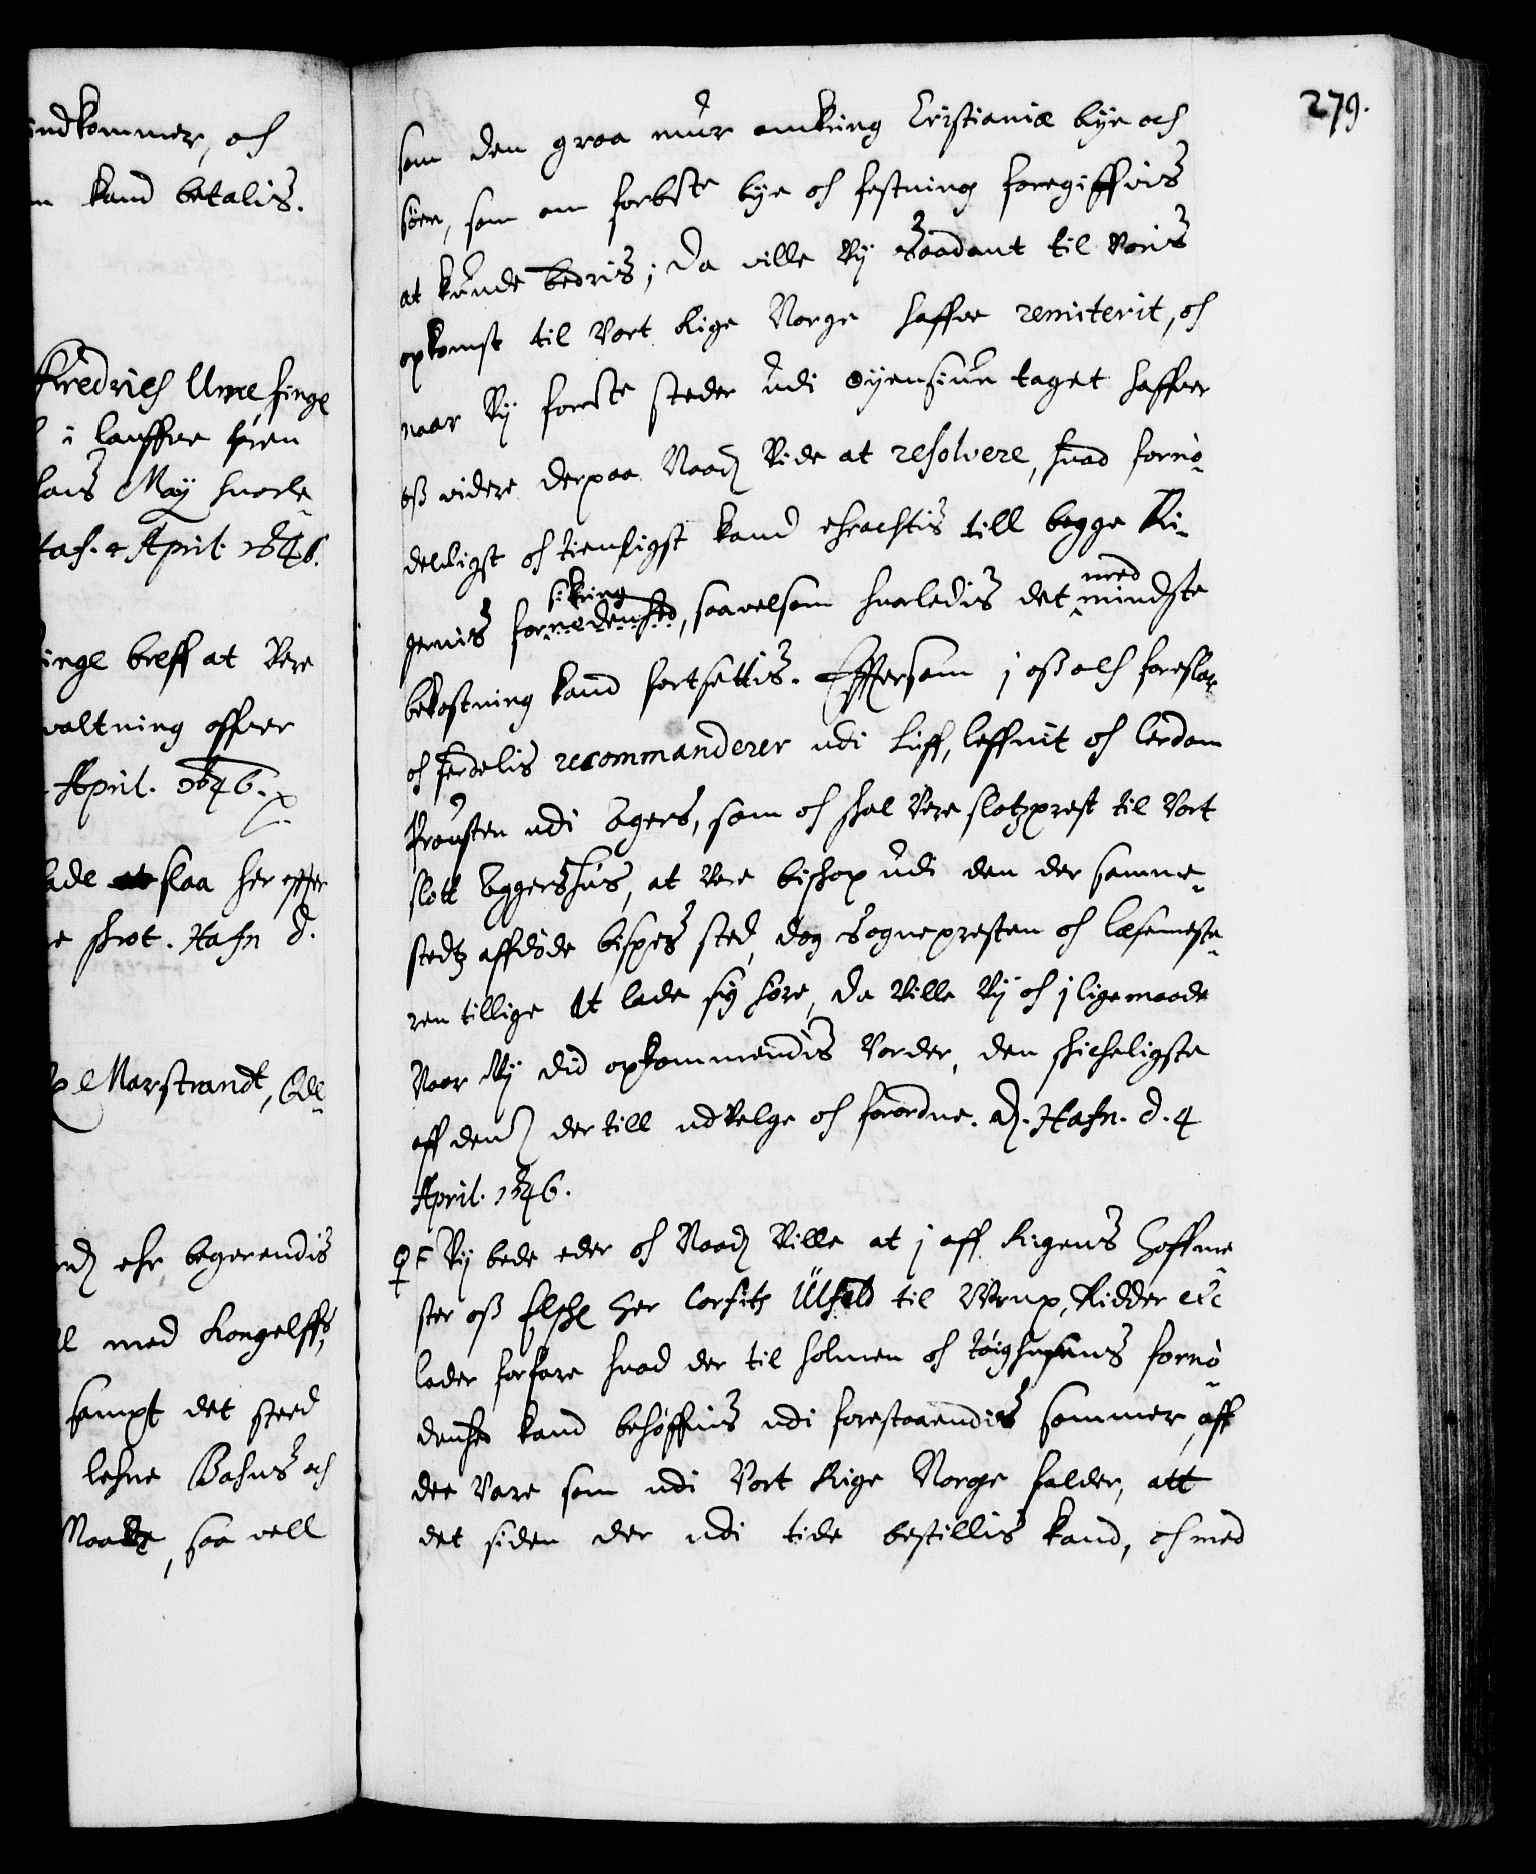 indkommer, och
kand betalis.
Fredrich Urne finge
i lauffue
hans May huorle¬
Haf. 4 April 1646.
inge breff at Vere
valtning offuer
April. 1646.
lade slaa her effter
skrot. Hafn d.
Marstrandt, Od¬
ehr begerendis
med Kongelffs,
sampt det sted
lehne Bahus och
Naade, saa vell
279.
som den graa muur omkring Cristianiæ bye och
 som om forbte bye och festning foregiffuis
at kunde bedris; Da ville Vy Saadant til Voris
opkomst til Vort Rige Norge haffue remiterit, och
naar Vy forbte steder udi øyensiun taget haffuer
oß videre derpaa Naad. Vide at resolvere, huad fornø¬
deligst och tienligst kand ehrachtis till begge Ri¬
gernis fornødenhed sikring, saauelsom huorledis det med mindste
bekostning kand fortsettis. Effterson j oß och foreslar
och recommanderer udi Liiff, leffnit och lerdom
Prousten udi Agers, som och skal Vere slotzprest til Vort
slott Aggershus, at Vere bischop udi den der samme¬
stedtz affdøde bispes sted, dog Sognepresten och læsemeste¬
ren tillige at lade sig høre, da Ville Vy och j ligemaade
Naar Vy did opkommendis Vorder, den skicheligste
aff denn. der till udvelge och forordne. Ad. Hafn. d. 4
April. 1646.
C 4 Vy bede eder och Naad. Ville at j aff Rigens Hoffme¬
ster oß Elschl Her Corfitz Ulfeld til Urup, Ridder etc
lader forfare huad der til holmen och tøighusens fornø¬
denhed kand behøffuis udi forestaaendis sommer, aff
dee Vare som udi Vort Rige Norge falder, att
det siden der udi tide bestillis kand, och med